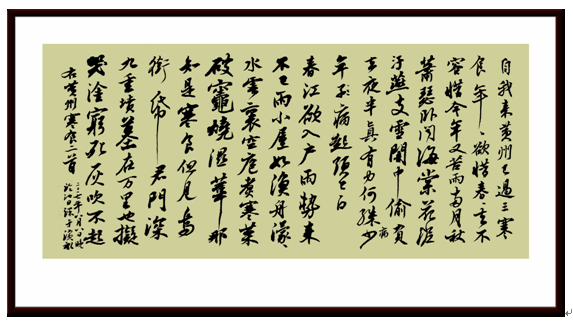 自我来黄州已過三寒
食年〻欲惜春〻去不
容惜今年又苦雨兩月秋
蕭瑟卧闻海棠花泥
汙燕支雪闇中偷負
去夜半真有力何殊少
病
年子病起頭已白
春江欲入户雨勢来
不已雨小屋如渔舟濛〻
水雲裏空庖煮寒菜
破竈燒湿葦那
知是寒食但見烏
銜帋君門深
九重墳墓在万里也擬
哭塗窮死灰吹不起
右黄州寒食二首